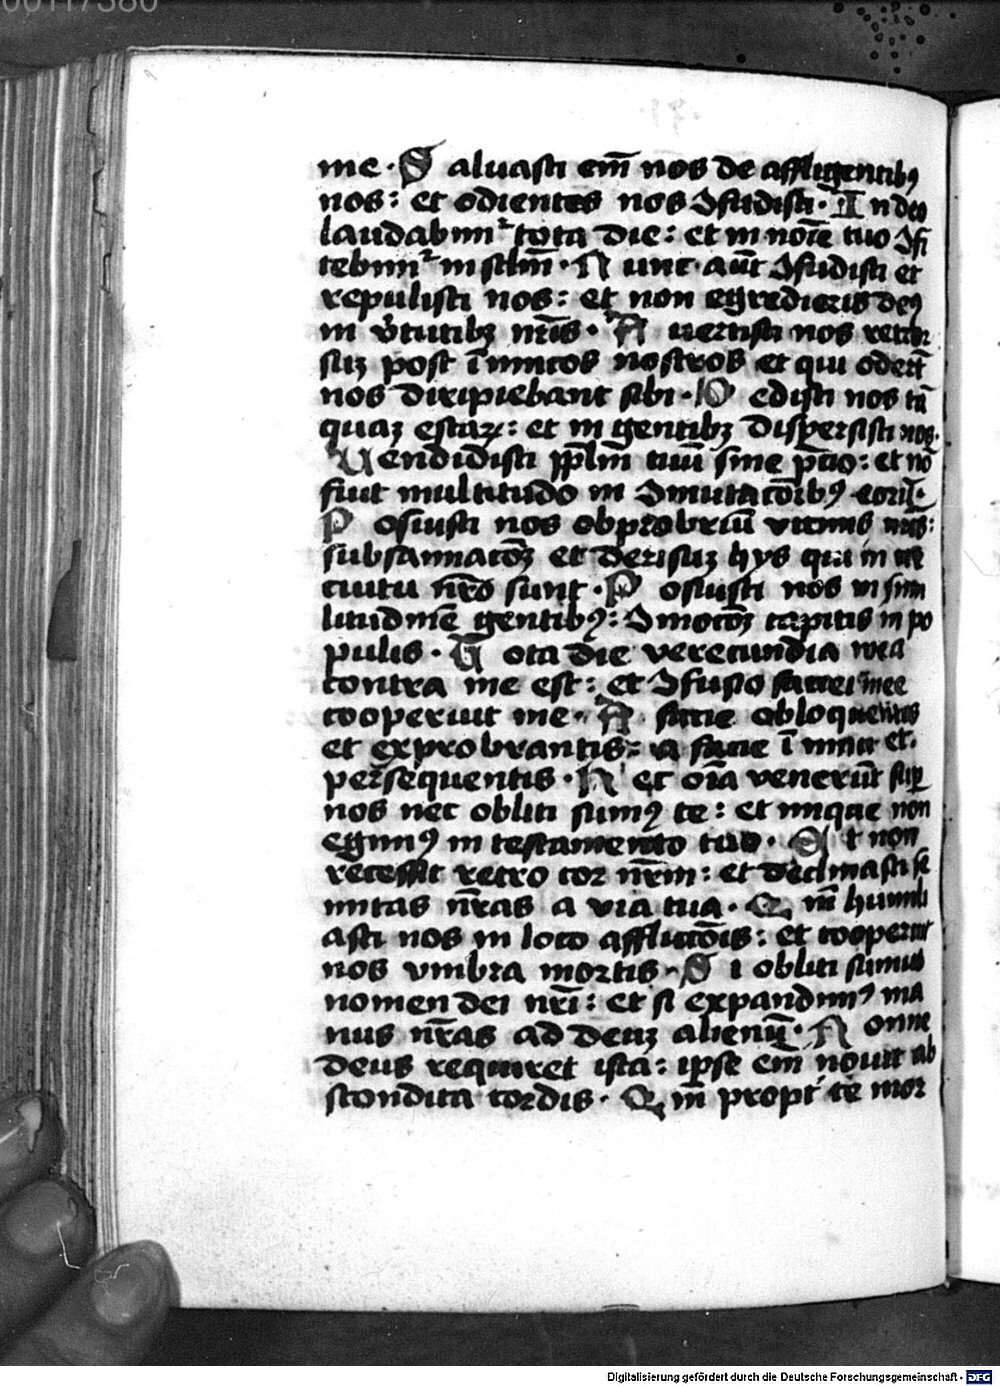 me · Saluasti em̄ nos de affligentibꝰ
nos : et odientes nos ꝯfudisti · In deo
laudabimᷣ tota die : et in noīe tuo ꝯfi
tebimᷣ in sclm̄ · Nunc aūt ꝯfudisti et
repulisti nos : et non egredieris deꝰ
in v̓tutibꝫ nr̄is · Auertisti nos retror
suꝫ post īmicos nostros et qui oderūt
nos diripiebant sibi · Dedisti nos tā
quaꝫ escaꝫ : et in gentibꝫ dispersisti nos ·
Uendidisti pplm̄ tuū sine p̄cio : et nō
fuit multitudo in ꝯmutacōibꝰ eorū ·
Posuisti nos obprobriū vicinis nr̄is :
subsannacōꝫ et derisuꝫ hys qui in cir
cuitu nr̄o sunt · Posuisti nos in simi
litudinē gentibꝰ : ꝯmocōꝫ capitis in po
pulis · Tota die verecundia mea
contra me est : et ꝯfusio faciei mee
cooperuit me · A facie obloquentis
et exprobrantis : a facie īmici et
persequentis · Hec oīa venerūt sup̄
nos nec obliti sumꝰ te : et inique non
egimꝰ in testamento tuo · Et non
recessit retro cor nr̄m : et declinasti se
mitas nr̄as a via tua · Qm̄ humili
asti nos in loco afflictōis : et cooperuit
nos vmbra mortis · Si obliti sumus
nomen dei nr̄i : et si expandimꝰ ma
nus nr̄as ad deuꝫ alienū · Nonne
deus requiret ista : ipse em̄ nouit ab
scondita cordis · Qm̄ propt̓ te mor
Digitalisierung gefördert durch die Deutsche Forschungsgemeinschaft - DFG